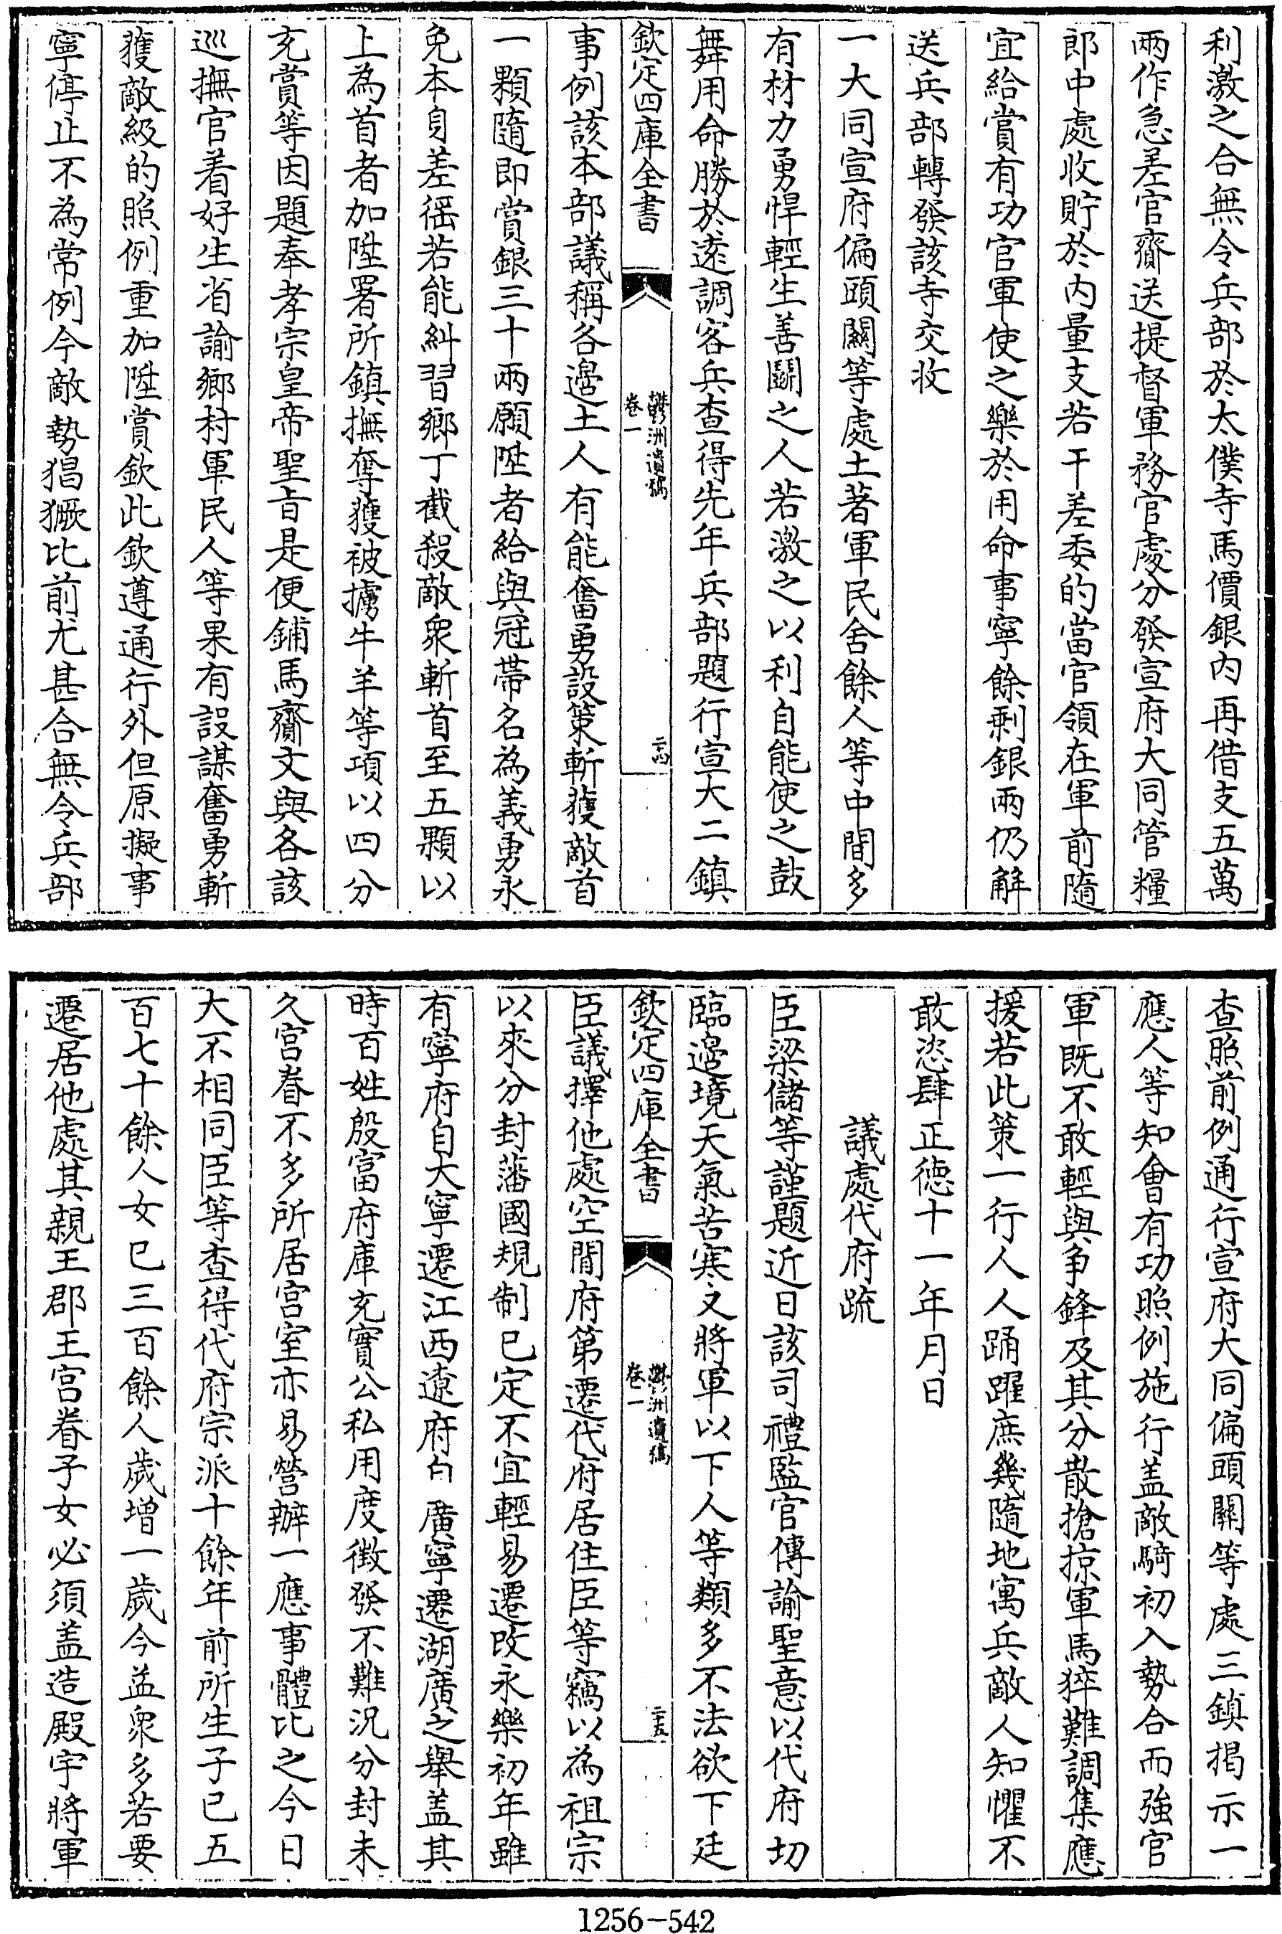 利激之合無令兵部於太僕寺馬價銀内再借支五萬
兩作急差官齎送提督軍務官處分發宣府大同管糧
郎中處收貯於内量支若干差委的當官領在軍前隨
宜給賞有功官軍使之樂於用命事寧餘剩銀兩仍解
送兵部轉發該寺交收
一大同宣府偏頭關等處土著軍民舍餘人等中間多
有材力勇悍輕生善鬭之人若激之以利自能使之鼓
舞用命勝於遠調客兵查得先年兵部題行宣大二鎮
欽定四庫全書
鬱洲遺稿
卷一
二十四
事例該本部議稱各邉土人有能奮勇設策斬獲敵首
一顆隨即賞銀三十兩願陞者給與冠帶名為義勇永
免本身差徭若能糾習鄉丁截殺敵衆斬首至五顆以
上為首者加陞署所鎮撫奪獲被擄牛羊等項以四分
充賞等因題奉孝宗皇帝聖旨是便鋪馬齎文與各該
巡撫官着好生省諭鄉村軍民人等果有設謀奮勇斬
獲敵級的照例重加陞賞欽此欽遵通行外但原擬事
寧停止不為常例今敵勢猖獗比前尤甚合無令兵部
查照前例通行宣府大同偏頭關等處三鎮揭示一
應人等知會有功照例施行盖敵騎初入勢合而強官
軍既不敢輕與爭鋒及其分散搶掠軍馬猝難調集應
援若此策一行人人踊躍庶幾隨地寓兵敵人知懼不
敢恣肆正徳十一年月日
議處代府疏
臣梁儲等謹題近日該司禮監官傳諭聖意以代府切
臨邉境天氣苦寒又將軍以下人等類多不法欲下廷
欽定四庫全書
鬱洲遺稿
卷一
二十五
臣議擇他處空閒府第遷代府居住臣等竊以為祖宗
以來分封藩國規制已定不宜輕易遷改永樂初年雖
有寧府自大寧遷江西遼府自廣寧遷湖廣之舉盖其
時百姓殷富府庫充實公私用度徵發不難況分封未
久宫眷不多所居宫室亦易營辦一應事體比之今日
大不相同臣等查得代府宗派十餘年前所生子已五
百七十餘人女已三百餘人歲增一歲今益衆多若要
遷居他處其親王郡王宫眷子女必須盖造殿宇將軍
1256-542